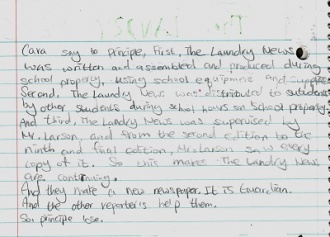 Cara say to principe, First, The Laundry News
was written and assembled and produced during
school property, using school equipment and supplies
Second, The Laundry News was distributed to students
by other students during school hours on School property.
And third, The Landry News was supervised by
Mr. Larson, and from the second edition to the
ninth and final edition, Mr. Larson saw every
copy of it. So this makes The Landry News
are continuing.
And they make a new newspaper. It is Guardian.
And the other reporter's help them.
So principe lose.